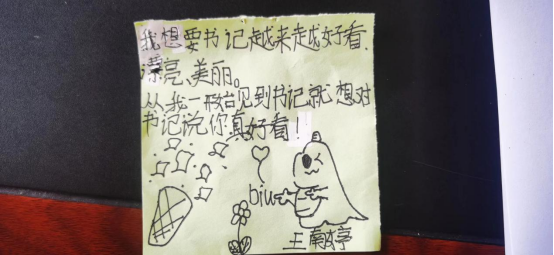 我想要书记越来越好看、
漂亮、美丽。
从我一开始见到书记就想对
书记说你真好看!
biu
王南婷